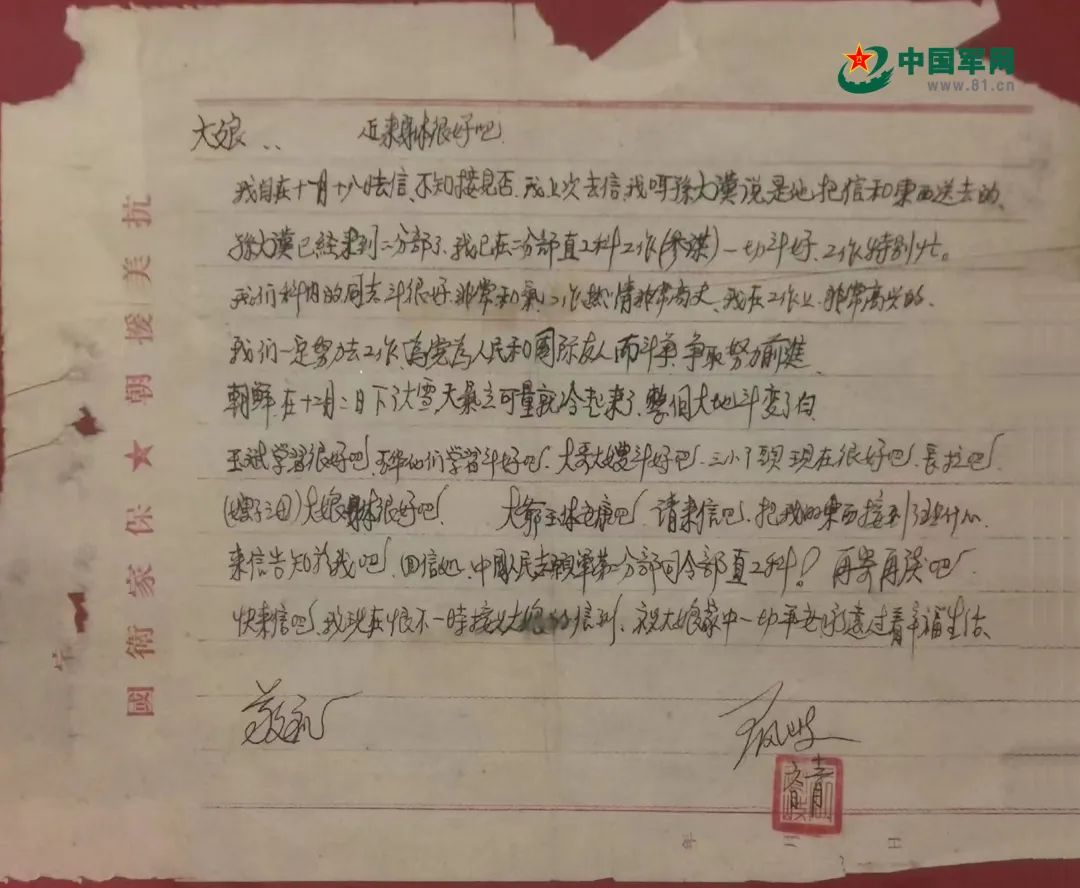 中国军网
www.81.cn
抗美援朝★保家衛國
大娘：近来身体很好吧
我自在十一月十八日去信、不知接見否、我上次去信、我叫孫大漢说是他把信和東西送去的、
孫大漢已經来到二分部了、我已在二分部直工科工作(参謀)一切斗好、工作特别忙。
我们科内的同志斗很好、非常和氣、工作热情非常高丈、我在工作上、非常高兴的、
我们一定努力去工作、為党為人民和國际友人而斗争、争取努力前進、
朝鮮在十二月二日下了大雪、天氣立可量就冷起来了、整個大地斗变了白、
玉斌学習很好吧、他们学習斗好吧、大哥大嫂斗好吧、三小丫頭现在很好吧、長拉吧
大娘身体很好吧 大爺玉体健康吧、请来信吧、把我的東西接到
来信告知於我吧、回信处、中國人民志願軍第二分部司令部直工科！再寄再谈吧
快来信吧、我现在恨不一時接大娘的信到、祝大娘家中一切平安永遠过着幸福生活、
敬礼
年
月
日